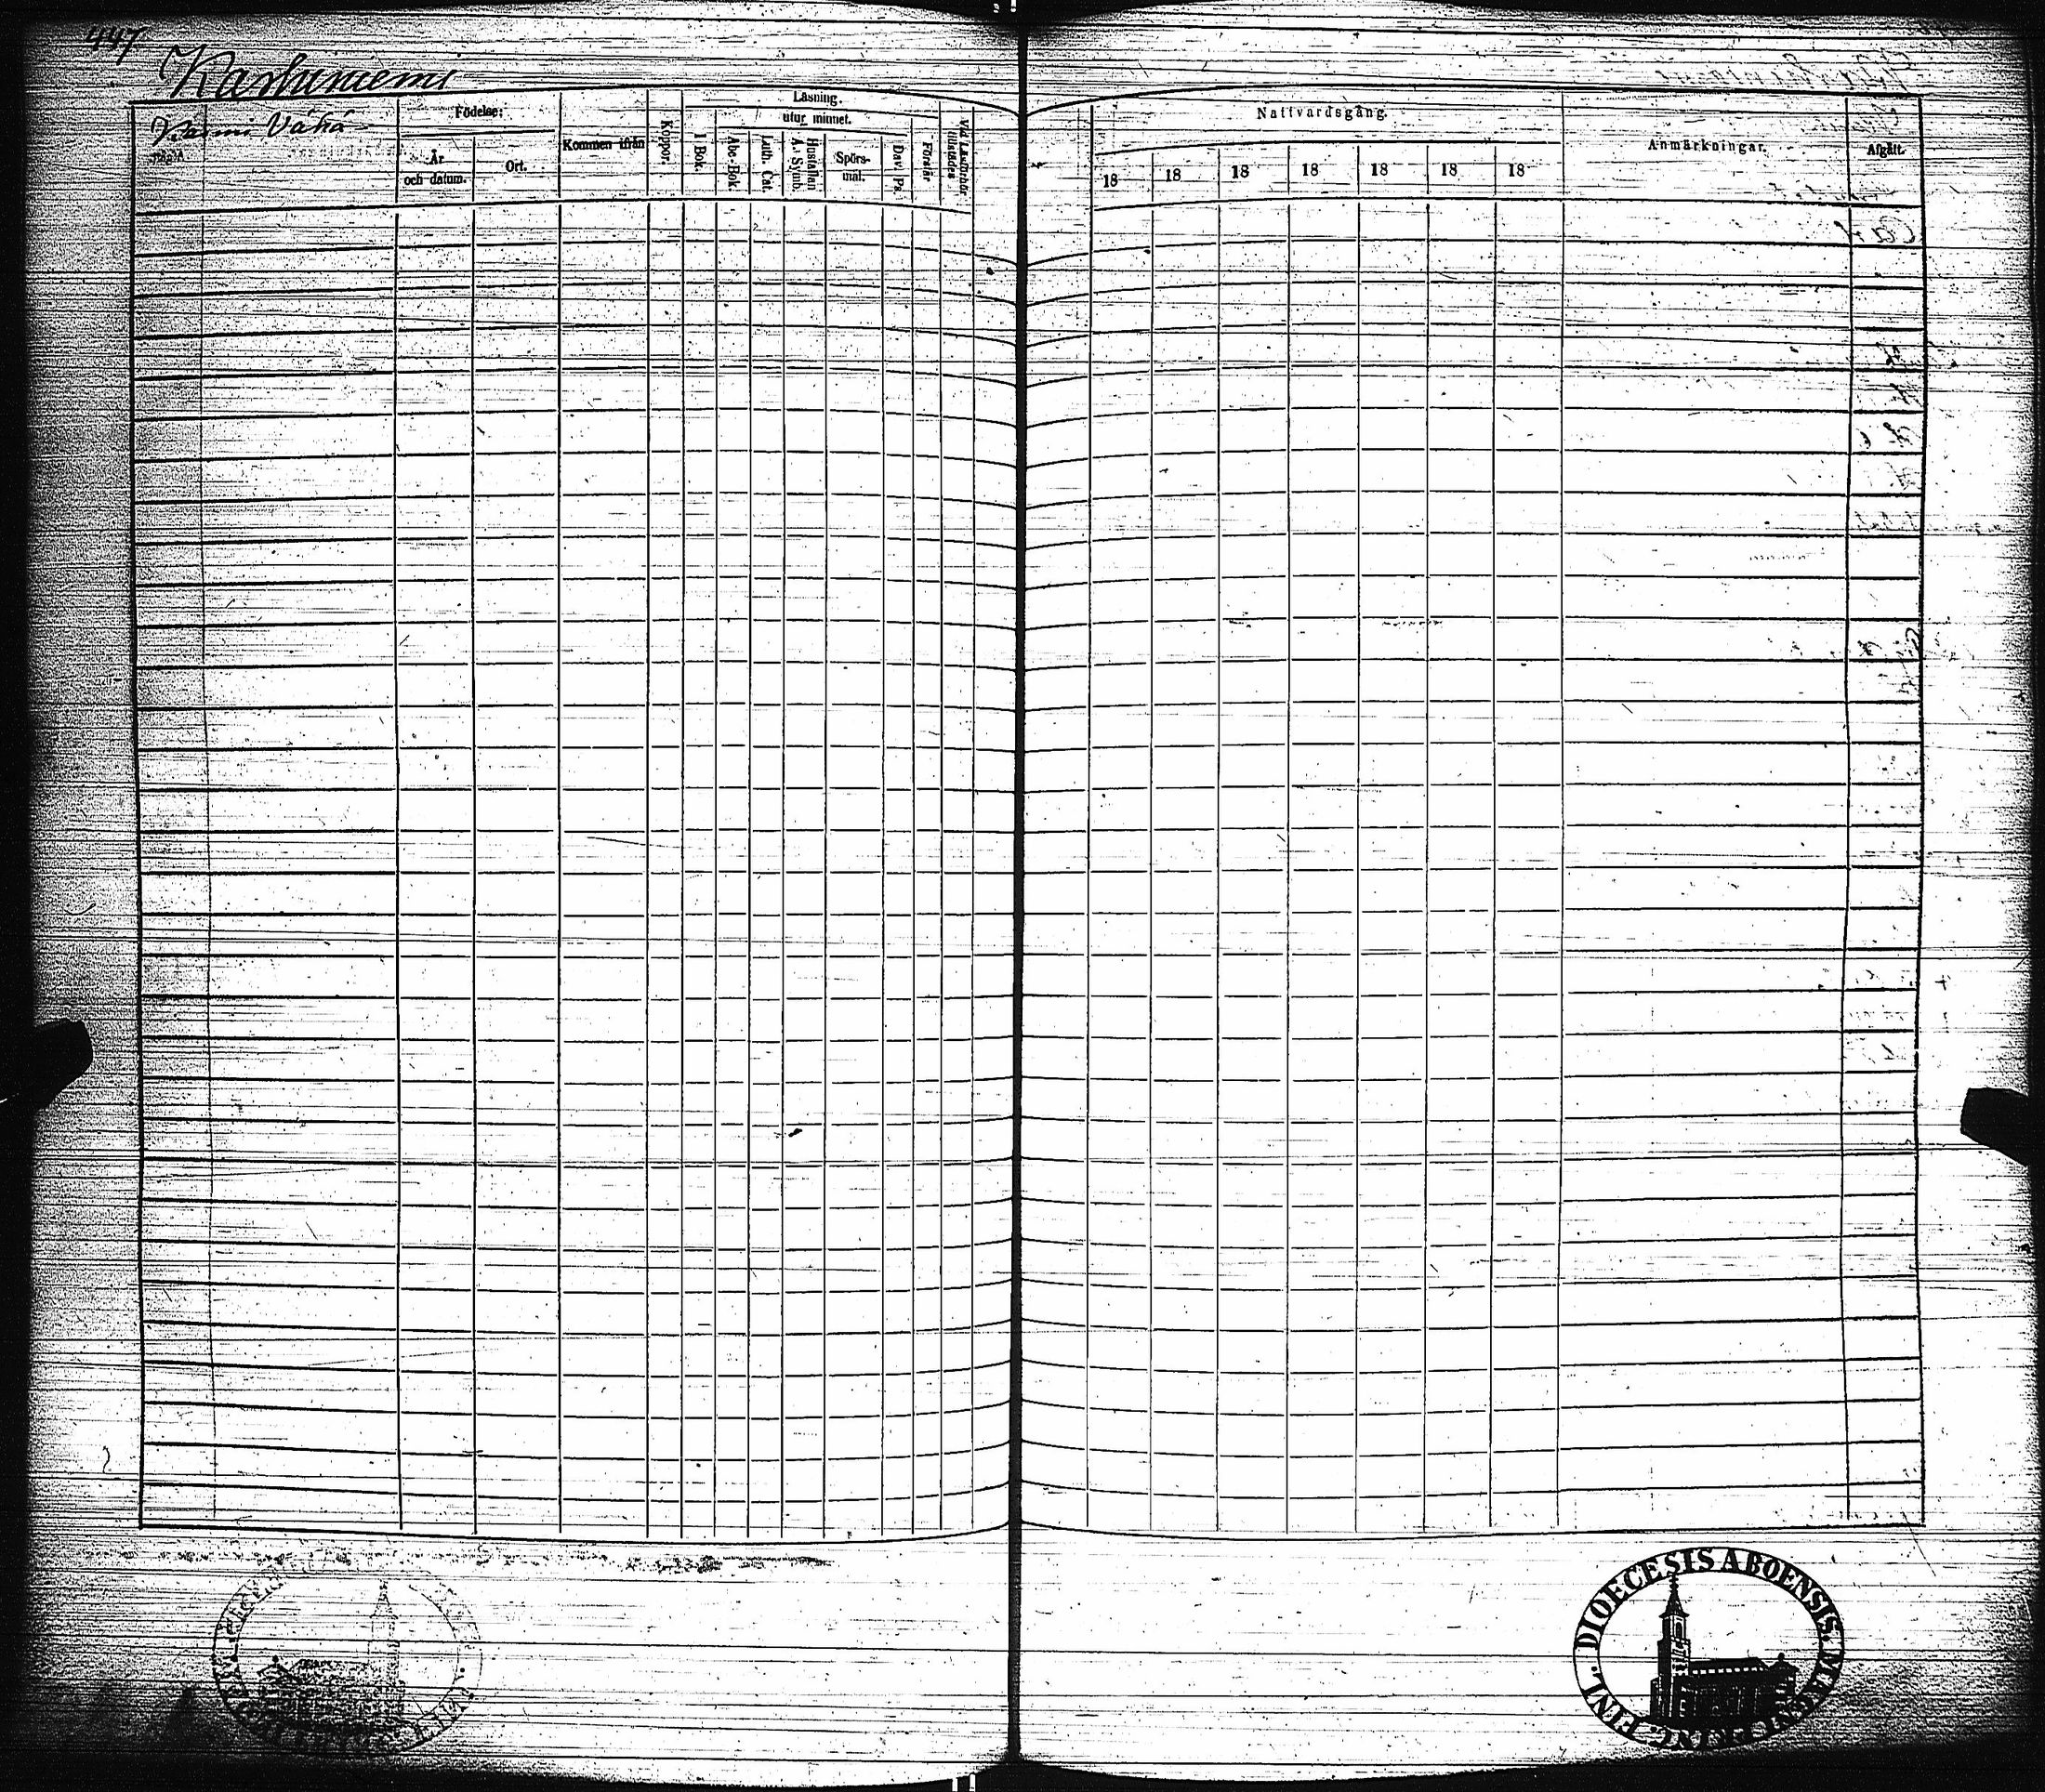 447
Kaskuniemi
Karmi Vähä
Födelse:
År
och datum.
Ort.
Kommen ifrån
Koppor.
Läsning.
utur minnet.
I Bok.
Abc-Bok
Luth. Cat.
Hustaflan
A. Symb.
Spörs-
mål.
Dav. Ps.
Förstår
Vid Läsförhör
tillstädes
Nattvardsgång.
18 18 18 18 18 18 18
Anmärkningar.
Afgått.
DIOECESIS ABOENSIS. MAGNI. PRINC. FINL.